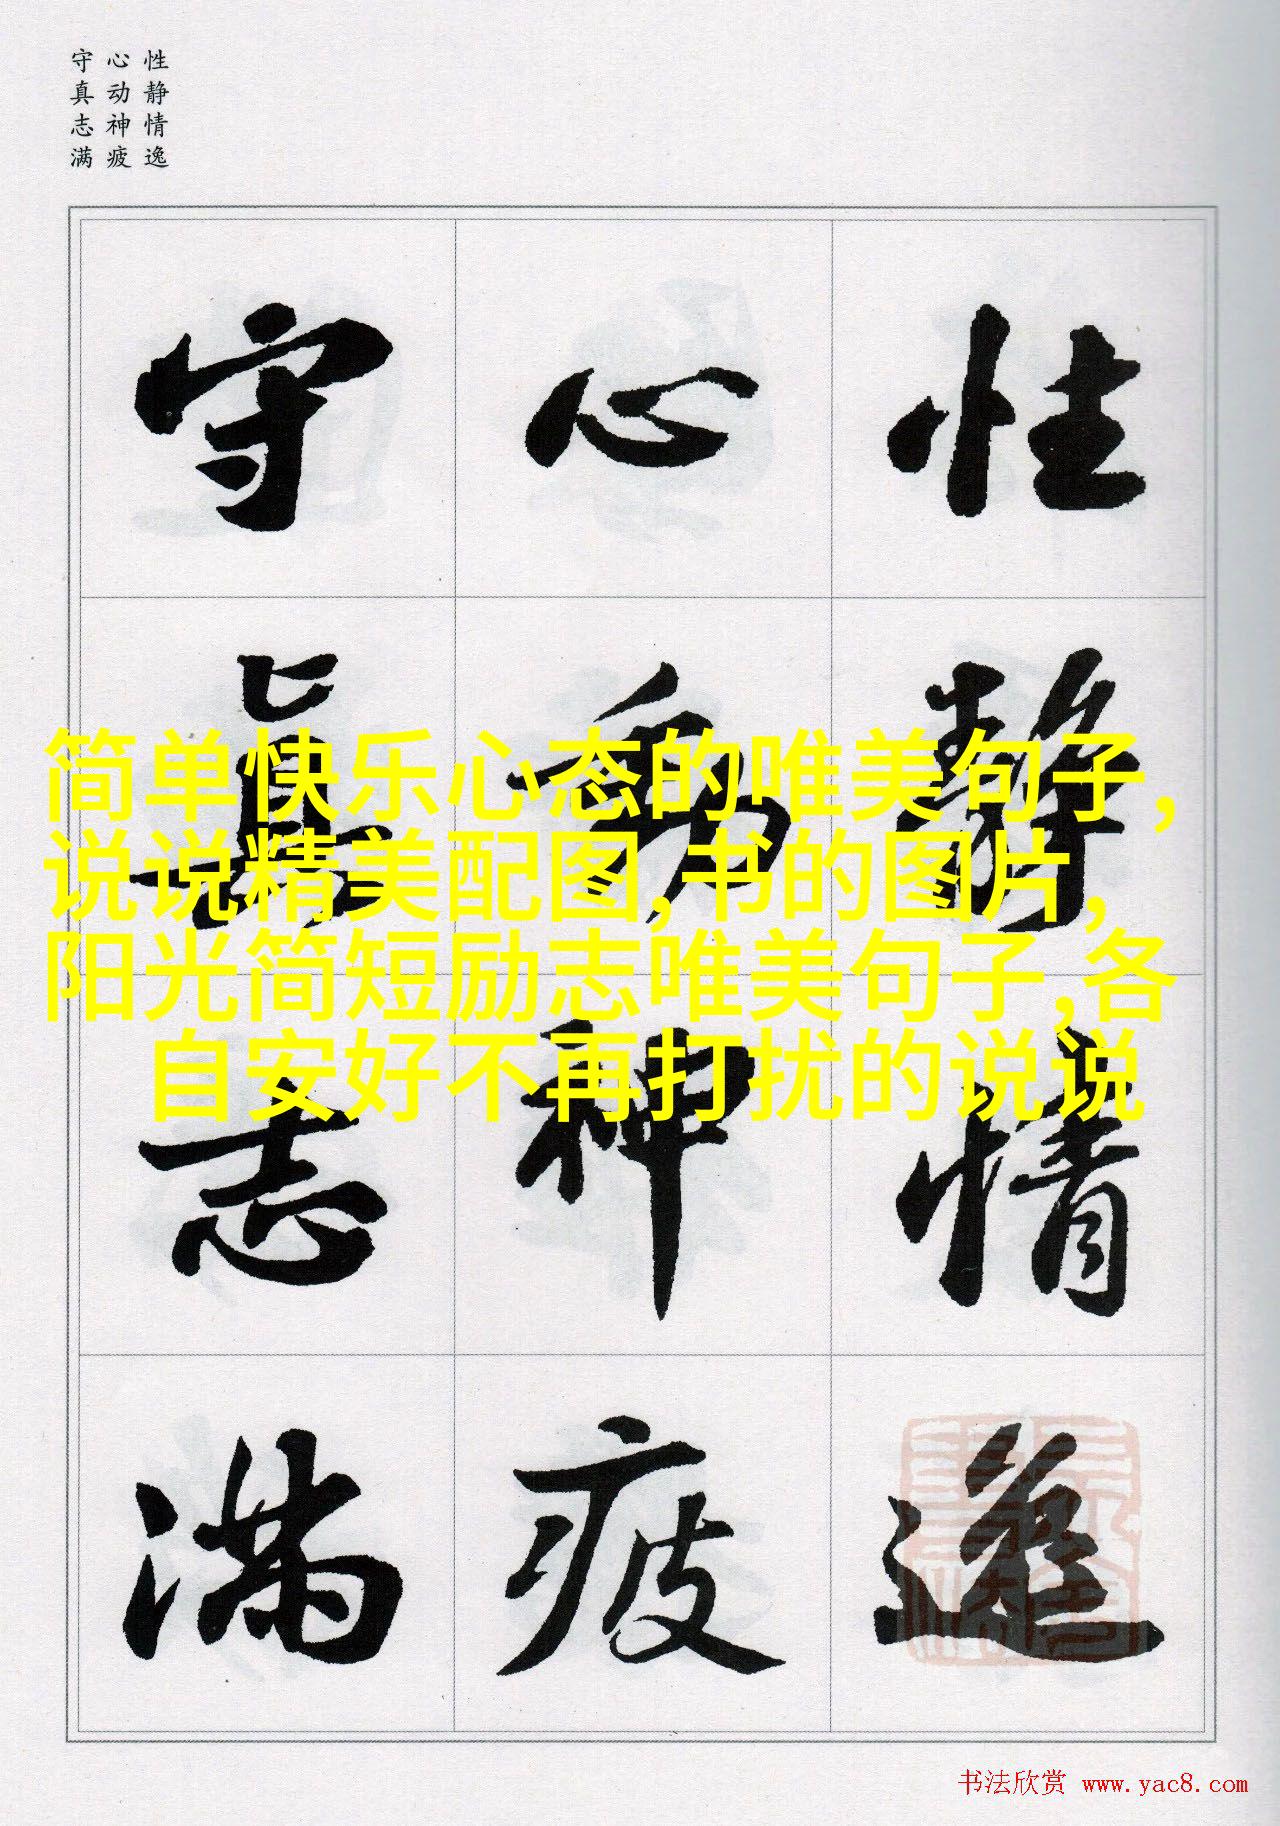 性静情逸
心动神疲
守真志满
性静情逸
心動神疲
守真志满
简单快乐心态的唯美句子,
说说精美配图,书的图片,
阳光简短励志唯美句子,各
自安好不再打扰的说说
书法欣赏 www.yac8.com